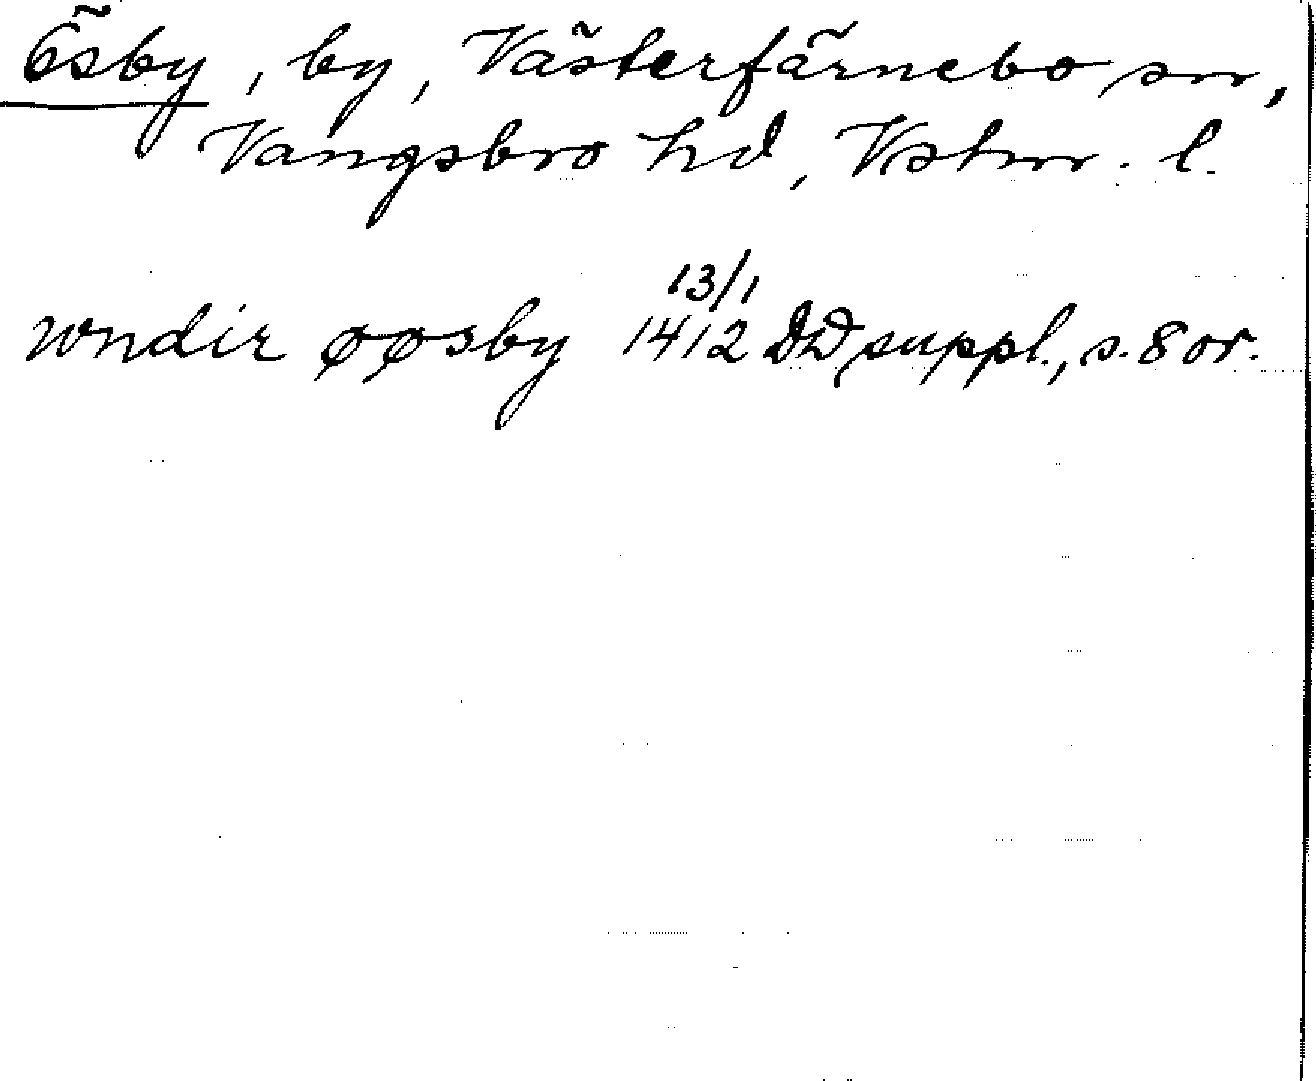 Ösby, by, Västerfärnebo sn,
Vangsbro hd, Vstm. l.
wndir øøsby 13/1 1412 DD suppl., s. 8 or.